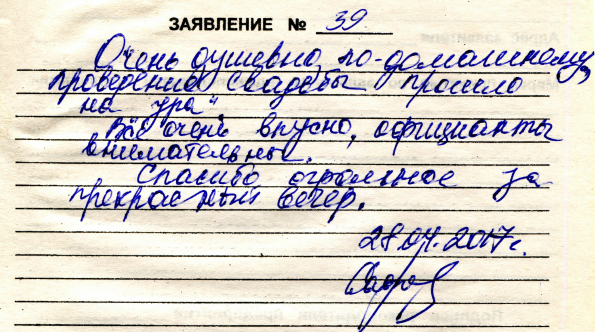 ЗАЯВЛЕНИЕ № 39
Очень душевно, по-домашнему,
проведение свадьбы прошло
на "ура"
Всё очень вкусно, официанты
внимательные.
Спасибо огромное за
прекрасный вечер.
28.04.2017 г.